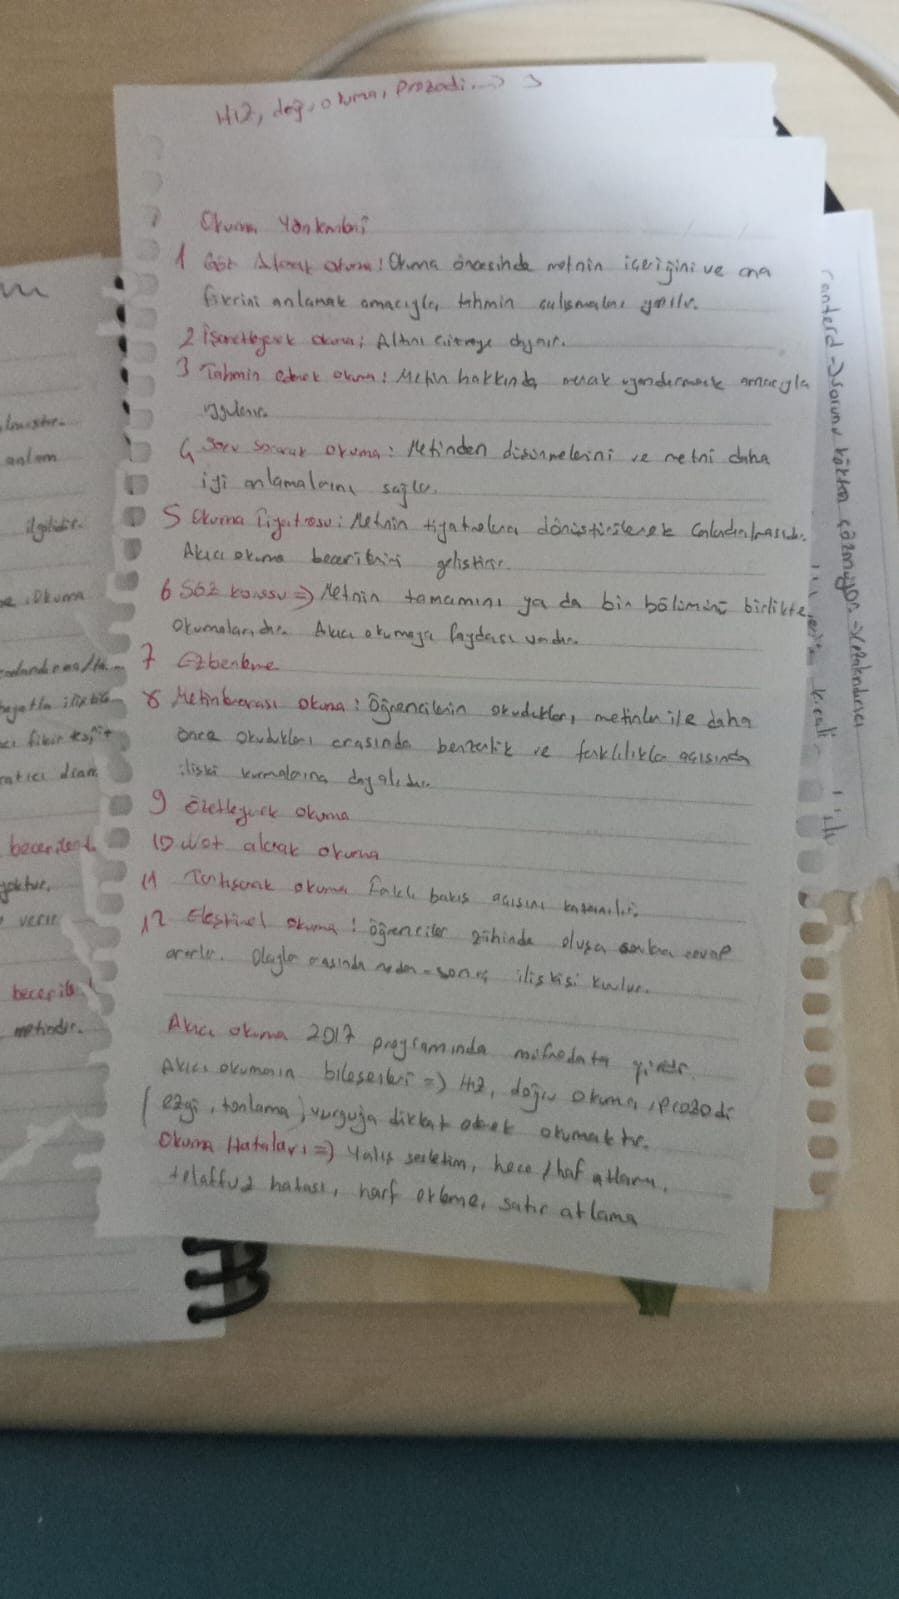 Hız, doğ, okuma, prozodi ⇒ 3
Okuma Yöntemleri
1 Göz Atarak okuma: Okuma öncesinde metnin içeriğini ve ana
fikrini anlamak amacıyla tahmin çalışmaları yapılır.
2 İşaretleyerek okuma; Altını çizmeye dayanır.
3 Tahmin ederek okuma: Metin hakkında merak uyandırmak amacıyla
uygulanır.
4 Soru sorarak okuma: Metinden düşünmelerini ve metni daha
iyi anlamalarını sağlar.
5 Okuma Tiyatrosu: Metnin tiyatrolara dönüştürülerek canlandırılmasıdır.
Akıcı okuma becerilerini geliştirir.
6 Söz korosu ⇒ Metnin tamamını ya da bir bölümünü birlikte
okumalarıdır. Akıcı okumaya faydası vardır.
7 Ezberleme
8 Metinlerarası okuma: Öğrencilerin okudukları, metinler ile daha
önce okudukları arasında benzerlik ve farklılıklar açısından
ilişki kurmalarına dayalıdır.
9 Özetleyerek okuma
10 Not alarak okuma
11 Tartışarak okuma farklı bakış açısını kazanılır.
12 Eleştirel okuma: öğrenciler zihinde oluşan cevap
ararlar. Olaylar arasında neden-sonuç ilişkisi kurulur.
Akıcı okuma 2017 programında müfredata girdi.
Akıcı okumanın bileşenleri ⇒ Hız, doğru okuma, prozodi
(ezgi, tonlama) vurguya dikkat ederek okumaktır.
Okuma Hataları ⇒ Yalış sesletim, hece / harf atlama,
telaffuz hatası, harf ekleme, satır atlama
anlam
ilgilidir.
okuma
becerileri
yoktur.
verir
beceriler
metindir.
sorunu kökten çözmüyor.